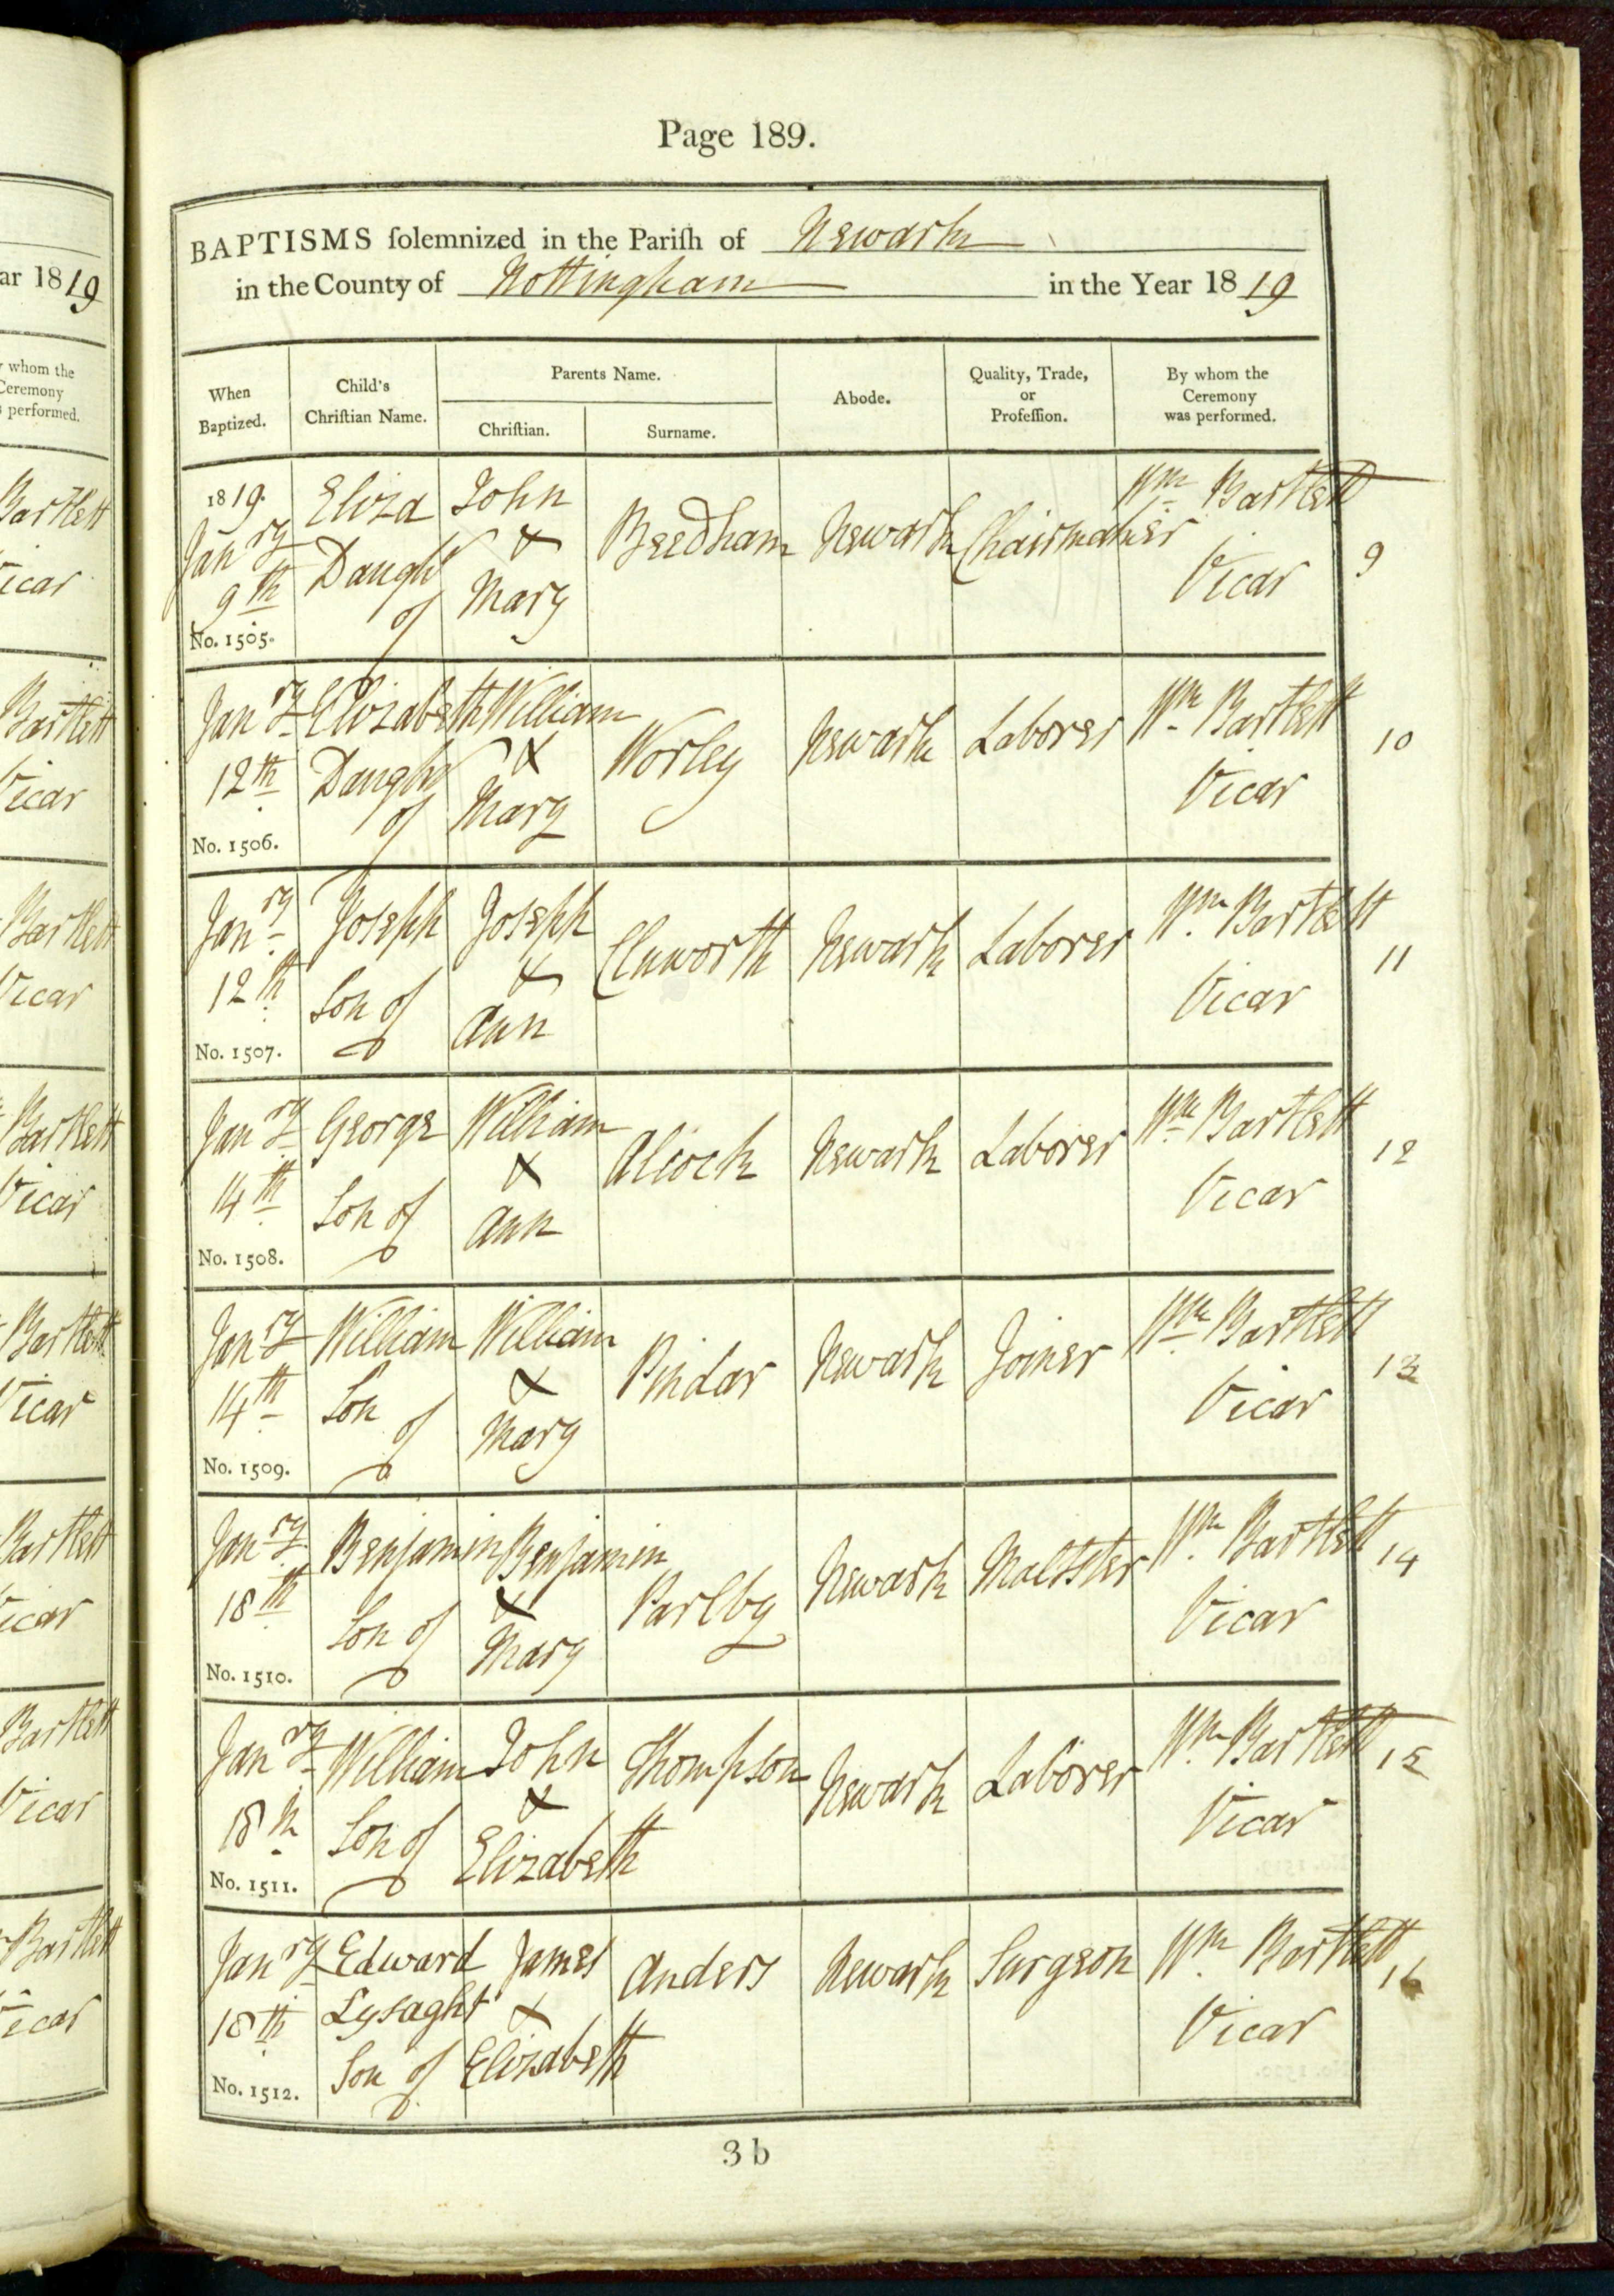 Page 189.
BAPTISMS solemnized in the Parish of Newark
in the County of Nottingham in the Year 1819
When Baptized.
Child's Christian Name.
Parents Name.
Christian.
Surname.
Abode.
Quality, Trade, or Profession.
By whom the Ceremony was performed.
1819. Janry 9th No. 1505.
Eliza Daughr of
John & Mary
Beedham
Newark
Chairmaker
Wm Bartlett Vicar
9
Janry 12th No. 1506.
Elizabeth Daughr of
William & Mary
Worley
Newark
Laborer
Wm Bartlett Vicar
10
Janry 12th No. 1507.
Joseph Son of
Joseph & Ann
Newark
Laborer
Wm Bartlett Vicar
11
Janry 14th No. 1508.
George Son of
William & Ann
Alcock
Newark
Laborer
Wm Bartlett Vicar
12
Janry 14th No. 1509.
William Son of
William & Mary
Pindar
Newark
Joiner
Wm Bartlett Vicar
13
Janry 18th No. 1510.
Benjamin Son of
Benjamin & Mary
Parlby
Newark
Maltster
Wm Bartlett Vicar
14
Janry 18th No. 1511.
William Son of
John & Elizabeth
Thompson
Newark
Laborer
Wm Bartlett Vicar
15
Janry 18th No. 1512.
Edward Lysaght Son of
James & Elizabeth
Anders
Newark
Surgeon
Wm Bartlett Vicar
16
3 b